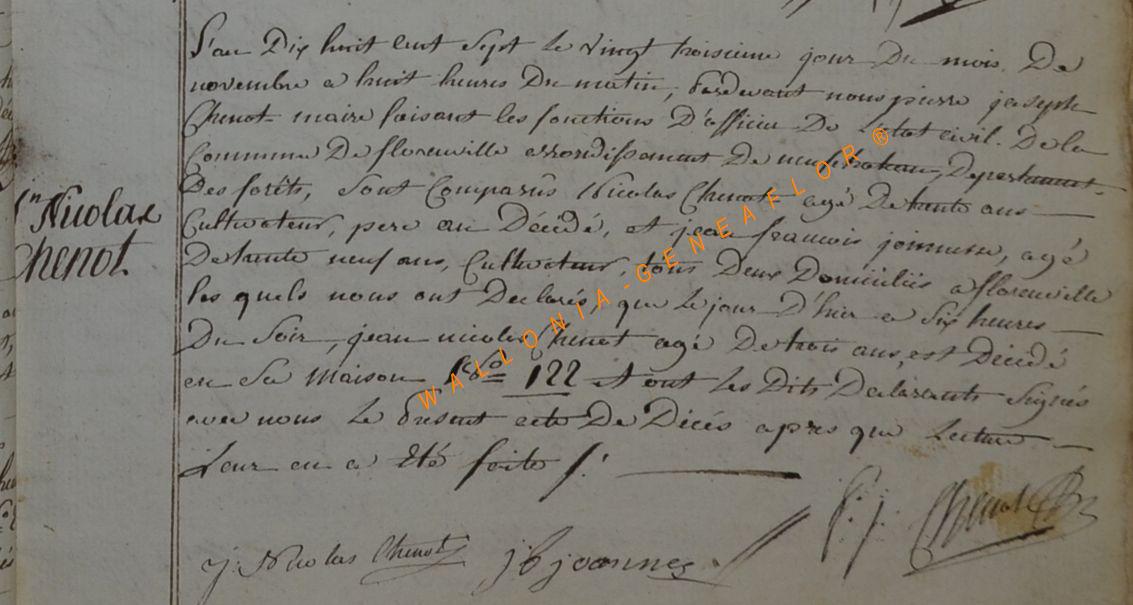 L'an Dix huit cent sept le vingt troisieme jour Du mois De
novembre a huit heures Du matin, pardevant nous pierre joseph
Chenot maire faisant les fonctions D'officier De l'etat civil. De la
Commune De florenville arrondissement De neufchateau, Departement
Des forêts, sont Comparus Nicolas Chenot agé De trente ans
Cultivateur, pere au Décédé, et jean francois agé
De trente neuf ans, Cultivateur, tous Deux Domiciliés a florenville
les quels nous ont Declarés, que le jour D'hier a Six heures
Du Soir, jean nicolas Chenot agé De trois ans, est Décédé
en Sa maison N° 122 et ont les Dits Declarants Signés
avec nous le present acte De Décés apres que Lecture
Leur en a Eté faite /.
Jn Nicolas
Chenot
p. j. Chenot
j: Nicolas Chenot
j f joannes
WALLONIA-GENEAFLOR ®